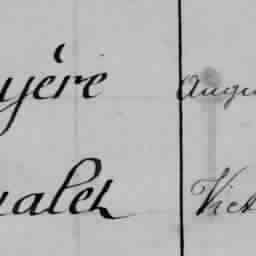 yère Augu
ualez Vict